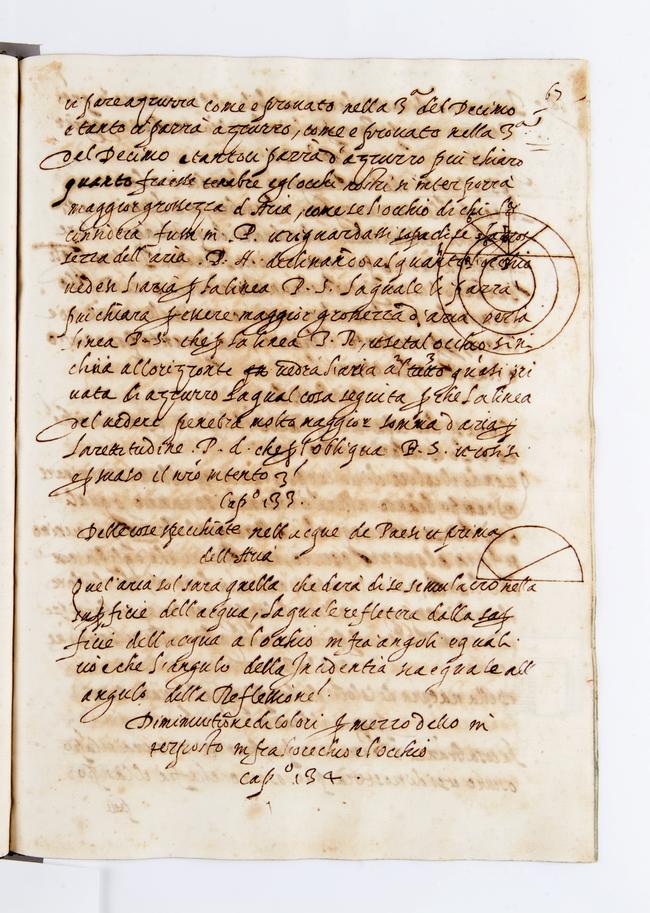 67
ci pare azzurra come e prouato nella 3.a del Decimo
e tanto ci parra azzurro, come e prouato nella 3.a
del Decimo e tanto ci parra d'azzurro piu chiaro
quanto fra esse tenebre e gl'occhi nostri s'interporra
maggior grossezza d'Aria, come se l'occhio di chi
considera fussi in .P. et riguardassi sopra di se
dell'aria .P. A. declinando alquanto l'occhio
ueden l'aria p la linea P. S. la quale li parra
piu chiara p essere maggior grossezza d'aria per la
linea P. S. che p la linea P. R, et se tal occhio s'in
china all'orizzonte uedra l'aria quasi pri
uata di azzurro la qual cosa seguita p che la linea
del uedere penetra molto maggior somma d'aria p
la rettitudine .P. d. che p l'obliqua P. S. et cosi si
e persuaso il nro intento
Cap.o 133.
Delle cose specchiate nell'acque de Paesi et prima
dell'Aria
Quel'aria sol sara quella che dara di se simulacro nella
superficie dell'acqua, la quale refletera dalla sup
ficie dell'acqua a l'occhio infra angoli equali
cio e che l'angulo della Incidentia sia equale all'
angulo della Reflessione.
Diminuitione de Colori p mezzo dello in
terposto infra loro e l'occhio
Cap.o 134.